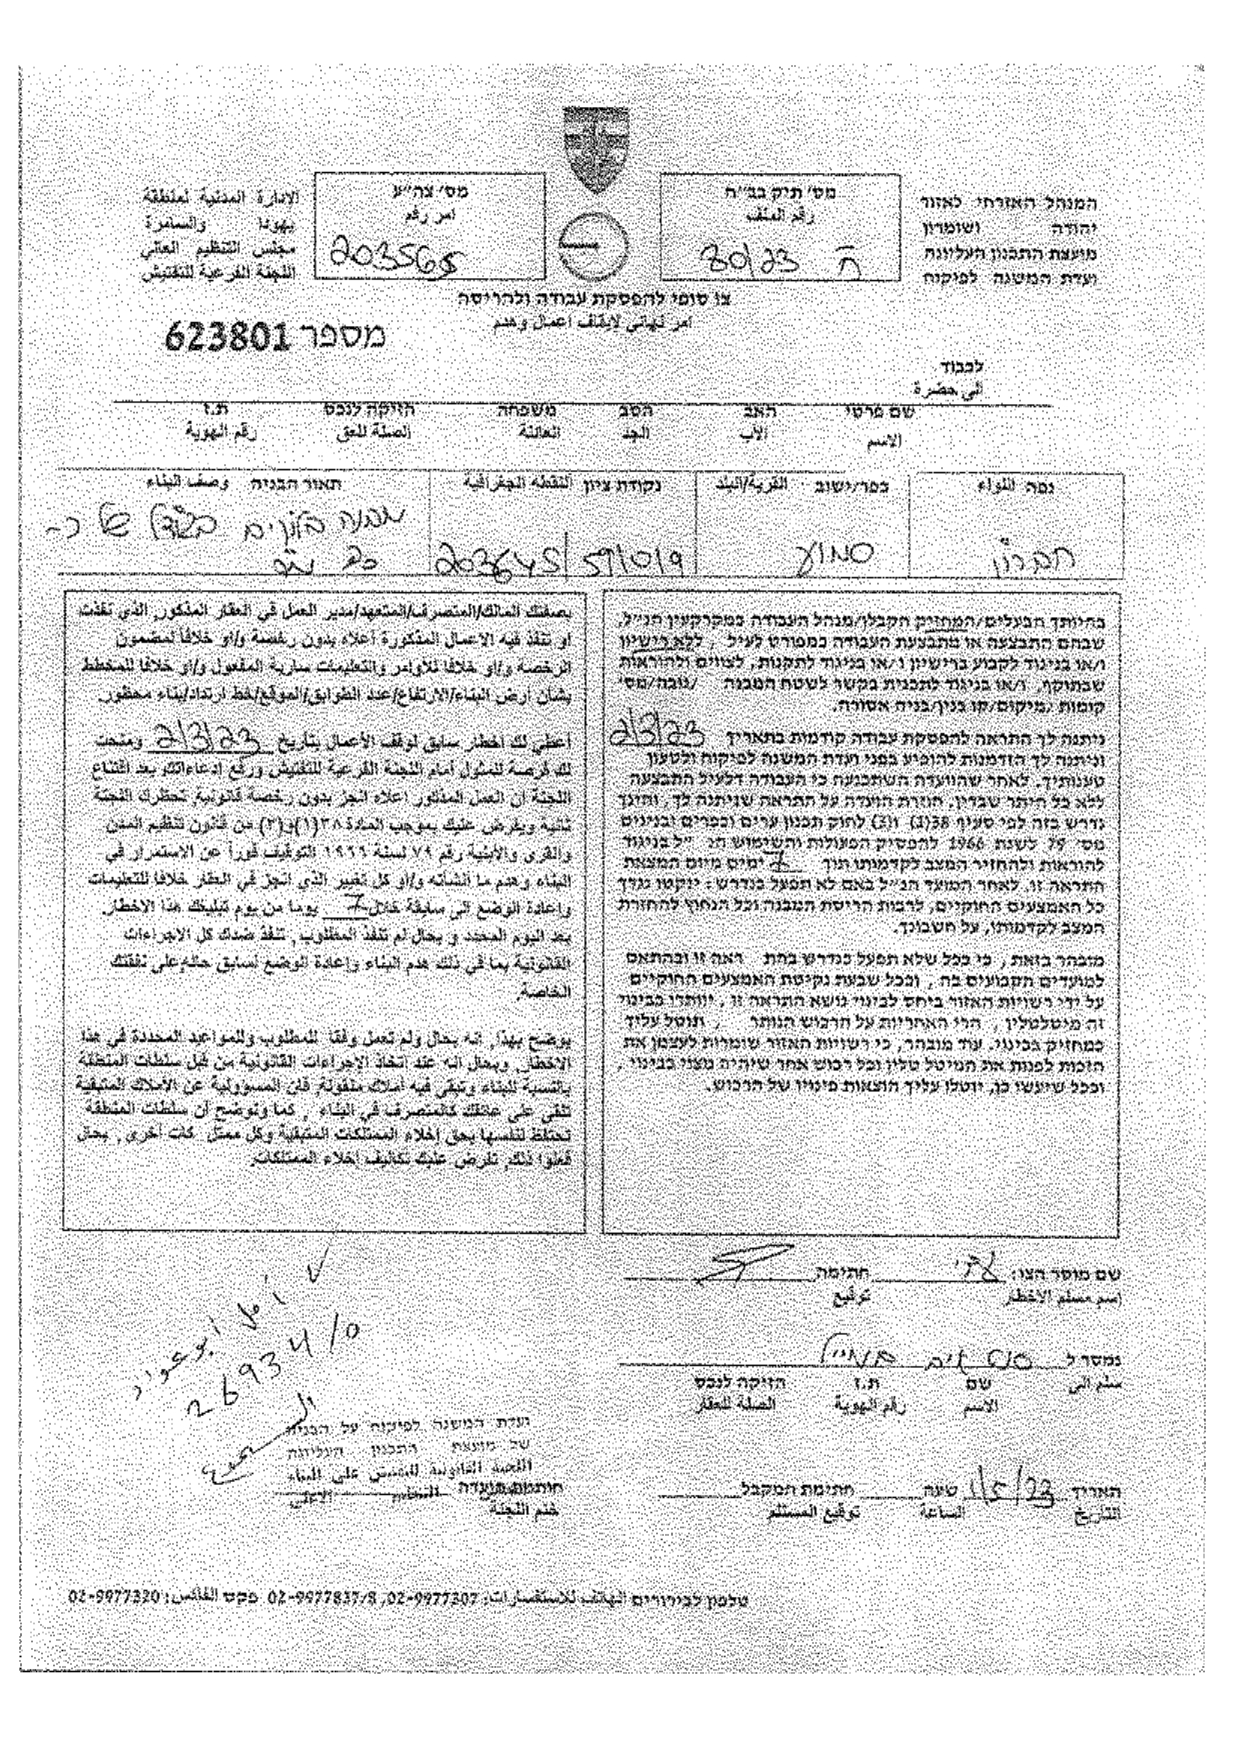 המנהל האזרחי לאזור
יהודה ושומרון
מועצת התכנון העליונה
ועדת המשנה לפיקוח
מס' תיק בב"ח
رقم الملف
ח 30/23
מס' צה"ע
امر رقم
203565
الادارة المدنية لمنطقة
يهودا والسامرة
مجلس التنظيم العالي
اللجنة الفرعية للتفتيش
צו סופי להפסקת עבודה ולהריסה
امر نهائي لايقاف اعمال وهدم
מספר 623801
לכבוד
الى حضرة
שם פרטי האב הסב משפחה הזיקה לנכס ת.ז
الاسم الأب الجد العائلة الصلة للعق رقم الهوية
נפה اللواء
חברון
כפר/ישוב القرية/البلد
סמוע
נקודת ציון النقطة الجغرافية
203645/591019
תאור הבניה وصف البناء
מבנה בלוקים בגודל של כ-
מ"ר
בהיותך הבעלים/המחזיק הקבלן/מנהל העבודה במקרקעין הנ"ל,
שבהם התבצעה או מתבצעת העבודה כמפורט לעיל, ללא רישיון
ו/או בניגוד לקבוע ברישיון ו/או בניגוד לתקנות, לצווים ולהוראות
שבתוקף, ו/או בניגוד לתכנית בקשר לשטח המבנה /גובה/מס'
קומות /מיקום/קו בנין/בניה אסורה.
ניתנה לך התראה להפסקת עבודה קודמת בתאריך 2/3/23
וניתנה לך הזדמנות להופיע בפני ועדת המשנה לפיקוח ולטעון
טענותיך. לאחר שהוועדה השתכנעה כי העבודה דלעיל התבצעה
ללא כל היתר שבדין, חוזרת הועדה על התראה שניתנה לך, והינך
נדרש בזה לפי סעיף 38(1) ו(3) לחוק תכנון ערים וכפרים ובניינים
מס' 79 לשנת 1966 להפסיק הפעולות והשימוש הנ"ל בניגוד
להוראות ולהחזיר המצב לקדמותו תוך 7 ימים מיום המצאת
התראה זו. לאחר המועד הנ"ל באם לא תפעל כנדרש: יינקטו נגדך
כל האמצעים החוקיים, לרבות הריסת המבנה וכל הנחוץ להחזרת
המצב לקדמותו, על חשבונך.
מובהר בזאת, כי ככל שלא תפעל כנדרש בהתראה זו ובהתאם
למועדים הקבועים בה, וככל שבעת נקיטת האמצעים החוקיים
על ידי רשויות האזור ביחס לבינוי נושא התראה זו, יוותרו בבינוי
זה מיטלטלין, הרי האחריות על הרכוש הנותר, תוטל עליך
כמחזיק בבינוי. עוד מובהר, כי רשויות האזור שומרות לעצמן את
הזכות לפנות את המיטלטלין וכל רכוש אחר שיהיה מצוי בבינוי,
וככל שיעשו כן, יוטלו עליך הוצאות פינויו של הרכוש.
بصفتك المالك/المتصرف/المتعهد/مدير العمل في العقار المذكور, الذي نفذت
او تنفذ فيه الاعمال المذكورة أعلاه بدون رخصة و/او خلافا لمضمون
الرخصة و/او خلافا للاوامر والتعليمات سارية المفعول و/او خلافا للمخطط
بشأن ارض البناء/الارتفاع/عدد الطوابق/الموقع/خط ارتداد/بناء محظور.
أعطي لك اخطار سابق لوقف الأعمال بتاريخ 2/3/23 ومنحت
لك فرصة للمثول أمام اللجنة الفرعية للتفتيش ورفع إدعاءاتك, بعد اقتناع
اللجنة ان العمل المذكور اعلاه انجز بدون رخصة قانونية, تحظرك اللجنة
ثانية ويفرض عليك بموجب المادة ٣٨(١)و(٣) من قانون تنظيم المدن
والقرى والأبنية رقم ٧٩ لسنة ١٩٦٦ التوقيف فورا عن الاستمرار في
البناء وهدم ما انشأته و/او كل تغيير الذي انجز في العقار خلافا للتعليمات
واعادة الوضع الى سابقة خلال 7 يوما من يوم تبليغك هذا الاخطار.
بعد اليوم المحدد و بحال لم تنفذ المطلوب, تنفذ ضدك كل الاجراءات
القانونية بما في ذلك هدم البناء وإعادة الوضع لسابق حاله, على نفقتك
الخاصة.
يوضح بهذا, انه بحال ولم تعمل وفقا للمطلوب وللمواعيد المحددة في هذا
الاخطار, وبحال انه عند اتخاذ الإجراءات القانونية من قبل سلطات المنطقة
بالنسبة للبناء وتبقى فيه أملاك منقولة, فان المسؤولية عن الأملاك المتبقية
تلقى على عاتقك كالمتصرف في البناء, كما ونوضح أن سلطات المنطقة
تحتفظ لنفسها بحق إخلاء الممتلكات المتبقية وكل ممتلكات أخرى, بحال
فعلوا ذلك, تفرض عليك تكاليف إخلاء الممتلكات.
שם מוסר הצו: חתימה
اسم مسلم الاخطار توقيع
נמסר ל
سلم الى
שם ת.ז הזיקה לנכס
الاسم رقم الهوية الصلة للعقار
תאריך 1/5/23 שעה חתימת המקבל
التاريخ الساعة توقيع المستلم
أمل أبو عواد
26934/0
ועדת המשנה לפיקוח על הבניה
של מועצת התכנון העליונה
اللجنة الثانوية للتفتيش على البناء
חותמת הועדה
ختم اللجنة
טלפון לבירורים الهاتف للاستفسارات: 02-9977307, 02-9977837/8 פקס الفاكس: 02-9977320